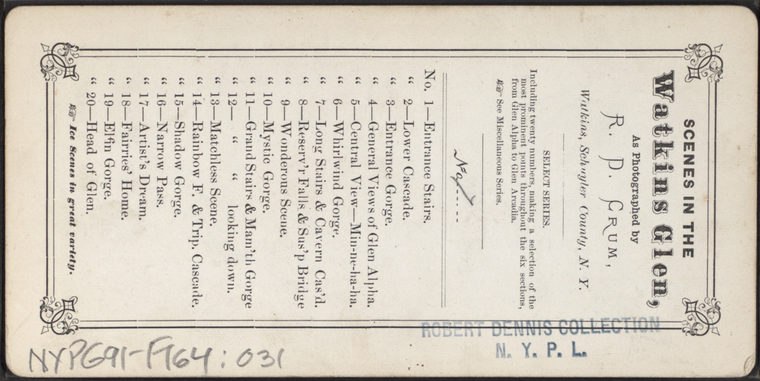 SCENES IN THE
Watkins Glen,
As Photographed by
R. D. CRUM,
Watkins, Schuyler County, N. Y.
SELECT SERIES.
Including twenty numbers, making a selection of the
most prominent points throughout the six sections,
from Glen Alpha to Glen Arcadia.
☞ See Miscellaneous Series.
No. 1—Entrance Stairs.
“ 2—Lower Cascade.
“ 3—Entrance Gorge.
“ 4—General Views of Glen Alpha.
“ 5—Central View—Min-ne-ha-ha.
“ 6—Whirlwind Gorge.
“ 7—Long Stairs & Cavern Cas'd.
“ 8—Reserv'r Falls & Sus'p Bridge
“ 9—Wonderous Scene.
“ 10—Mystic Gorge.
“ 11—Grand Stairs & Mam'th Gorge
“ 12— “ “ looking down.
“ 13—Matchless Scene.
“ 14—Rainbow F. & Trip. Cascade.
“ 15—Shadow Gorge.
“ 16—Narrow Pass.
“ 17—Artist's Dream.
“ 18—Fairries' Home.
“ 19—Elfin Gorge.
“ 20—Head of Glen.
☞ Ice Scenes in great variety.
ROBERT DENNIS COLLECTION
N. Y. P. L.
NYPG91-F964:031